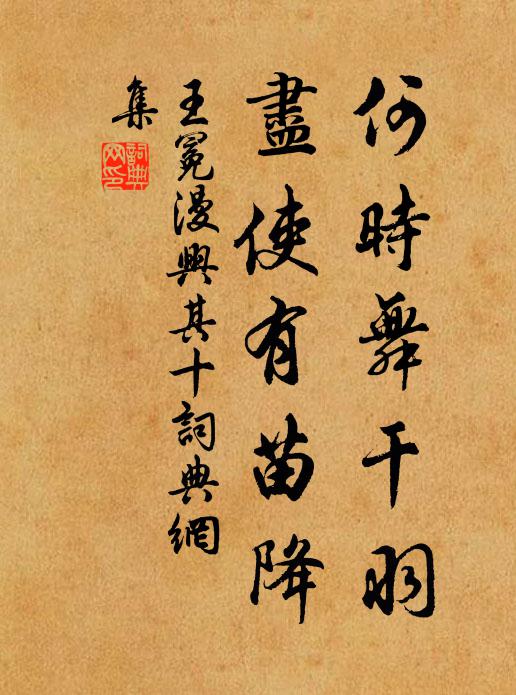 何時舞干羽
盡使有苗降
王冕漫興其十詞典網
集
詞典網印